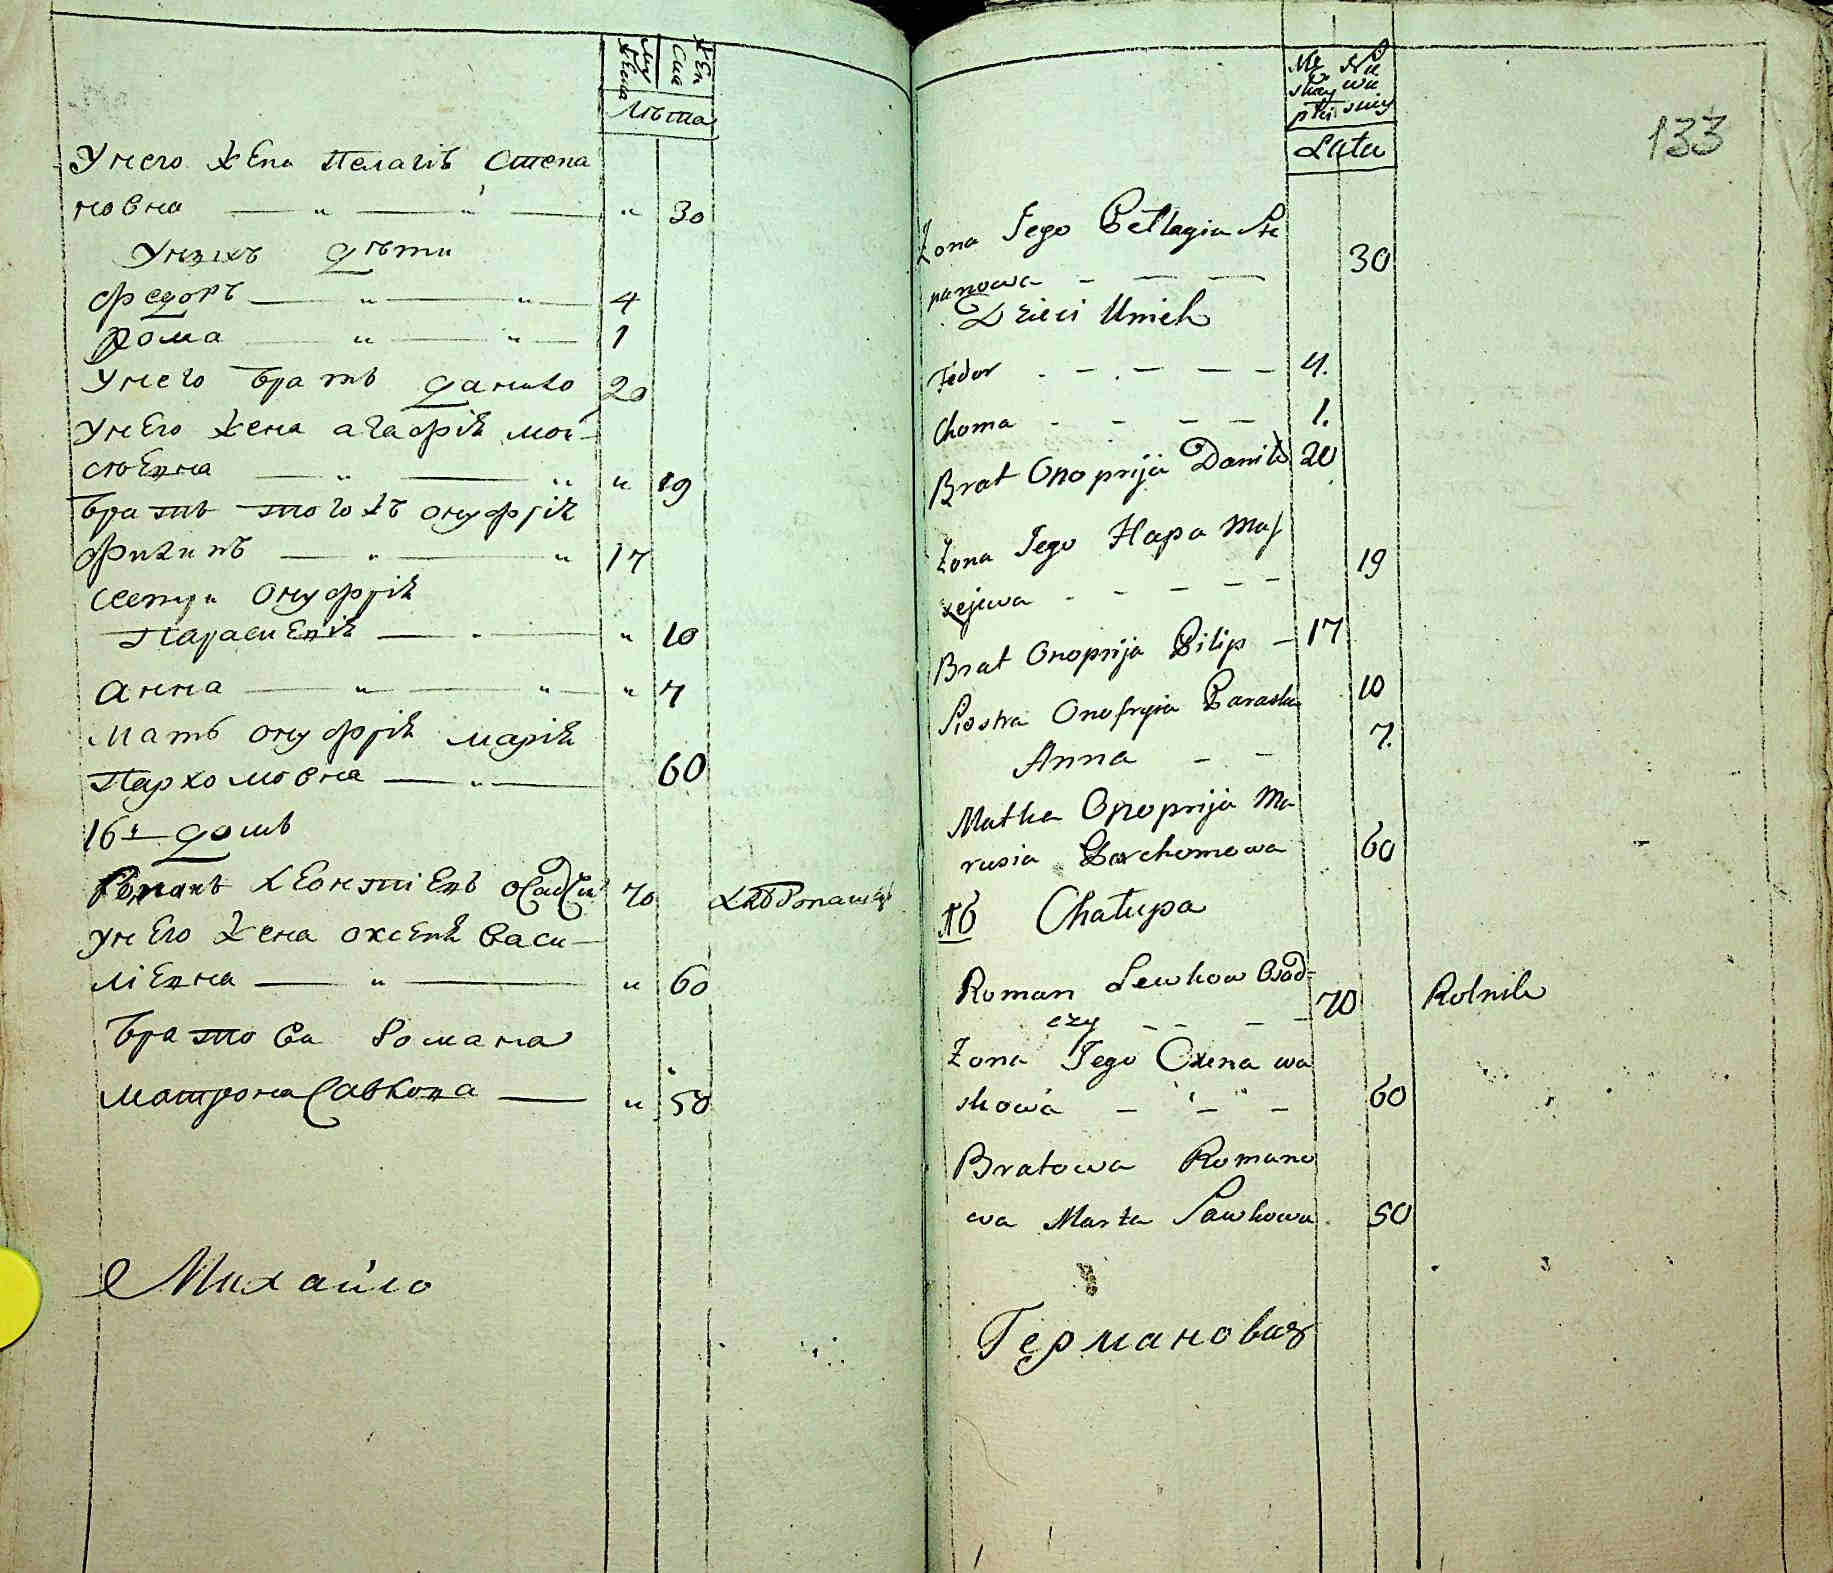 Муж
ска
Жен
ска
Лѣта
Унего жена Пелагiѣ Степа
новна 30
Унихъ дѣти
Федоръ 4
Хома 1
Унего братъ данило 20
Унего жена агафiѣ мои-
сюевна 19
братъ тогожъ онуфрiѣ
Филипъ 17
сестри Онуфрiѣ
Парасневiѣ 10
Анна 7
Мать онуфрiѣ марiѣ
Пархомовна 60
16й домъ
Романъ Осадчи 70
Унего жена оксенiѣ Васи-
лiевна 60
братова Романа
Матрона Савкова 50
Михайло
133
Lata
Żona Jego Pellagia Ste
panowa 30
Dzieci Unich
Fedor 4.
Choma 1.
Brat Onoprija Daniło 20
Żona Jego Hapa Moj
żejewa 19
Brat Onoprija Pilip 17
Siostra Onofryia Paraska 10
Anna 7.
Matka Onoprija Ma
rusia Parchomowa 60
16 Chałupa
Roman Lewkow Osad=
czy 70 Rolnik
Żona Jego Oxena wa
skowa 60
Bratowa Romano
wa Marta Sawkowa 50
Германовичъ